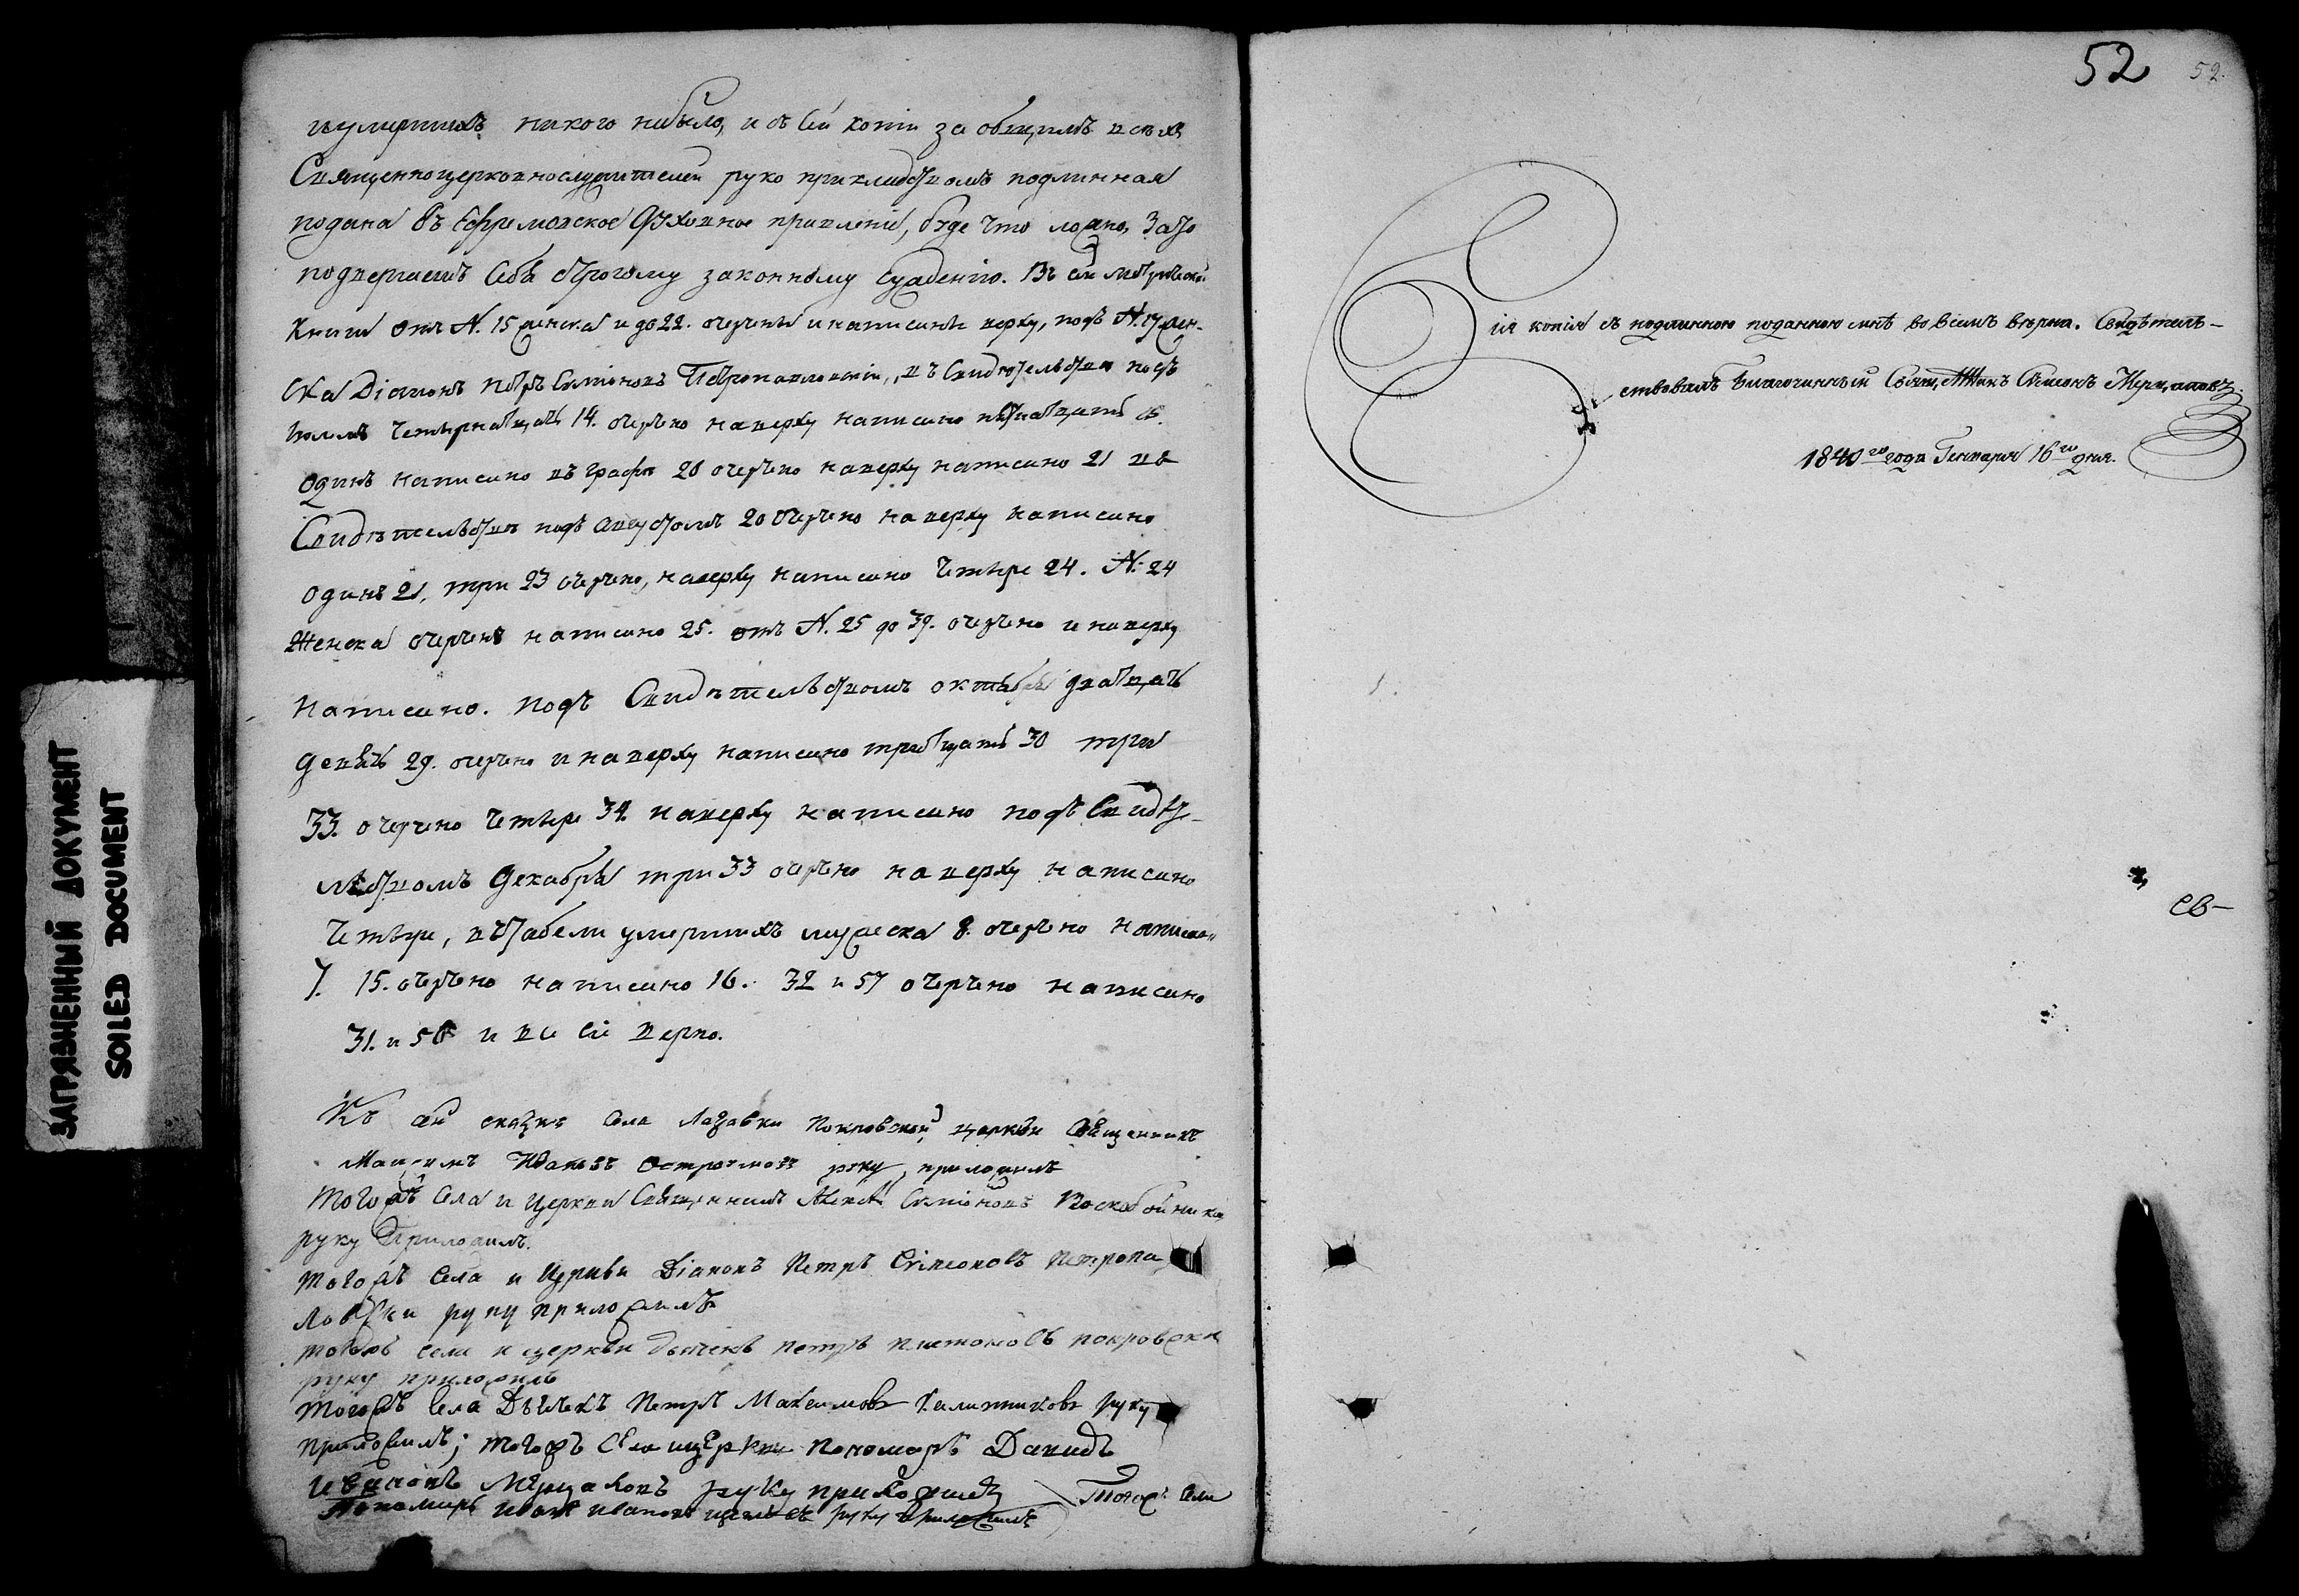 ЗАГРЯЗНЕННЫЙ ДОКУМЕНТ
SOILED DOCUMENT
умершихъ никого небыло, и съ сей копiи за общимъ всѣхъ
Священноцерковнослужителей руко прикладствомъ подлинная
подана въ Ефремовское Духовное правленiе, буде что ложно, За то
подвергаемъ Себя строгому законному Сужденiю. Въ сей метрической
Книги отъ N. 15 женска и до 22. очерчены и написаны верху, подъ N. 17 жен-
ска Дiаконъ Петръ Симiоновъ Петропавловскiй, въ Свидетельства подъ
Iюлемъ четырнатцать 14. очерчено наверху написано пятнатцать
одинъ написано въ графе 20 очерчено наверху написано 21 въ
Свидѣтельстве подъ августомъ 20 очерчено наверху написано
одинъ 21, три 23 очерчено, наверху написано четыре 24. N. 24
женска очерченъ написано 25. отъ N. 25 до 39. очерчено и наверху
написано. подъ Свидѣтельствомъ октября дватцать
девять 29. очерчено и наверху написано тритцать 30 три
33. очерчено четыре 34. наверху написано подъ Свидѣте-
льствомъ Декабря три 33 очерчено наверху написано
четыре, въ табели умершихъ мужеска 8. очерчено написано
7. 15. очерчено написано 16. 32 и 57 очерчено написано
31. и 58 и все сiе верно.
Къ сей сказке села Лазавки Покровской церкви Священникъ
Максимъ Ивановъ Остроумовъ руку приложилъ
Тогожъ Села и Церкви Священникъ Алексей Симiоновъ Воскобойников
руку Приложилъ.
Тогожъ Села и Церкви Дiаконъ Петръ Симеоновъ Петропа
ловски руку приложилъ
тогожъ села и церкви дьячекъ петръ Платоновъ покровски
руку приложилъ
Тогожъ села Дьячекъ Петръ Максимовъ Калитниковъ руку
приложилъ; тогожъ Села и церкви пономарь Давидъ
Ивановъ Мерцаловъ руку приложилъ Тогожъ Села
Пономарь Иванъ Ивановъ руку приложилъ
52 52.
Сiя копiя съ подлинною поданною мнѣ во всемъ вѣрна. Свидѣтель-
ствовалъ Благочинный Священникъ Симеонъ Мерцаловъ
1840го года Генваря 16го дня.
св-